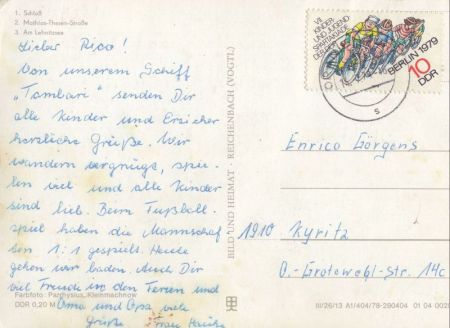 1. Schloß
2. Mathias-Thesen-Straße
3. Am Lehnitzsee
Lieber Rico!
Von unserem Schiff
„Tambari" senden Dir
alle Kinder und Erzieher
herzliche Grüße. Wir
wandern vergnügt, spie-
len viel und alle Kinder
sind lieb. Beim Fußball-
spiel haben die Mannschaf
ten 1:1 gespielt. Heute
gehen wir baden. Auch Dir
viel Freude in den Ferien und
Oma und Opa viele
Grüße Frau
Farbfoto: Parthysius, Kleinmachnow
DDR 0,20 M
BILD UND HEIMAT · REICHENBACH (VOGTL)
VII.
KINDER-
UND JUGEND
SPARTAKIADE
DER DDR
BERLIN 1979
10
DDR
s
Enrico Görgens
1910 Kyritz
O.-Grotewohl-Str. 14c
III/26/13 A1/404/78-290404 01 04 002